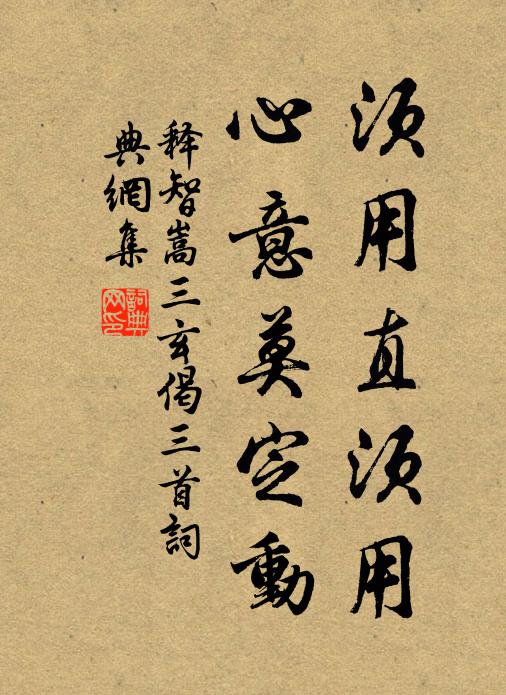 须用直须用
心意莫定動
释智嵩三玄偈三首詞
典網集
詞典
网印